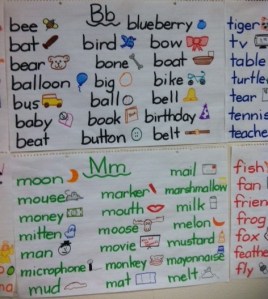 Bb
bee blueberry
bat bird bow
bear bone boat
balloon big bike
bus ball bell
baby book birthday
beat button belt
tiger
tv
table
turtle
tear
tennis
teacher
Mm
moon mail
mouse marker marshmallow
money mouth milk
mitten moose melon
man movie mustard
microphone monkey mayonnaise
mud mat melt
fish
fan
friend
frog
fox
feather
fly